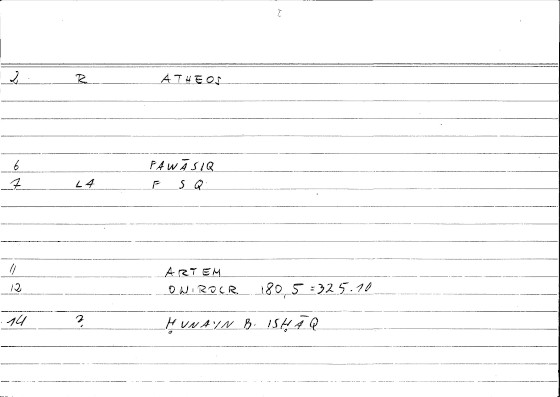 2 R ATHEOS
6 FAWĀSIQ
7 LA F S Q
11 ARTEM
12 ONIROCR. 180,5 = 325.10
14 ? ḤUNAYN B. ISḤĀQ